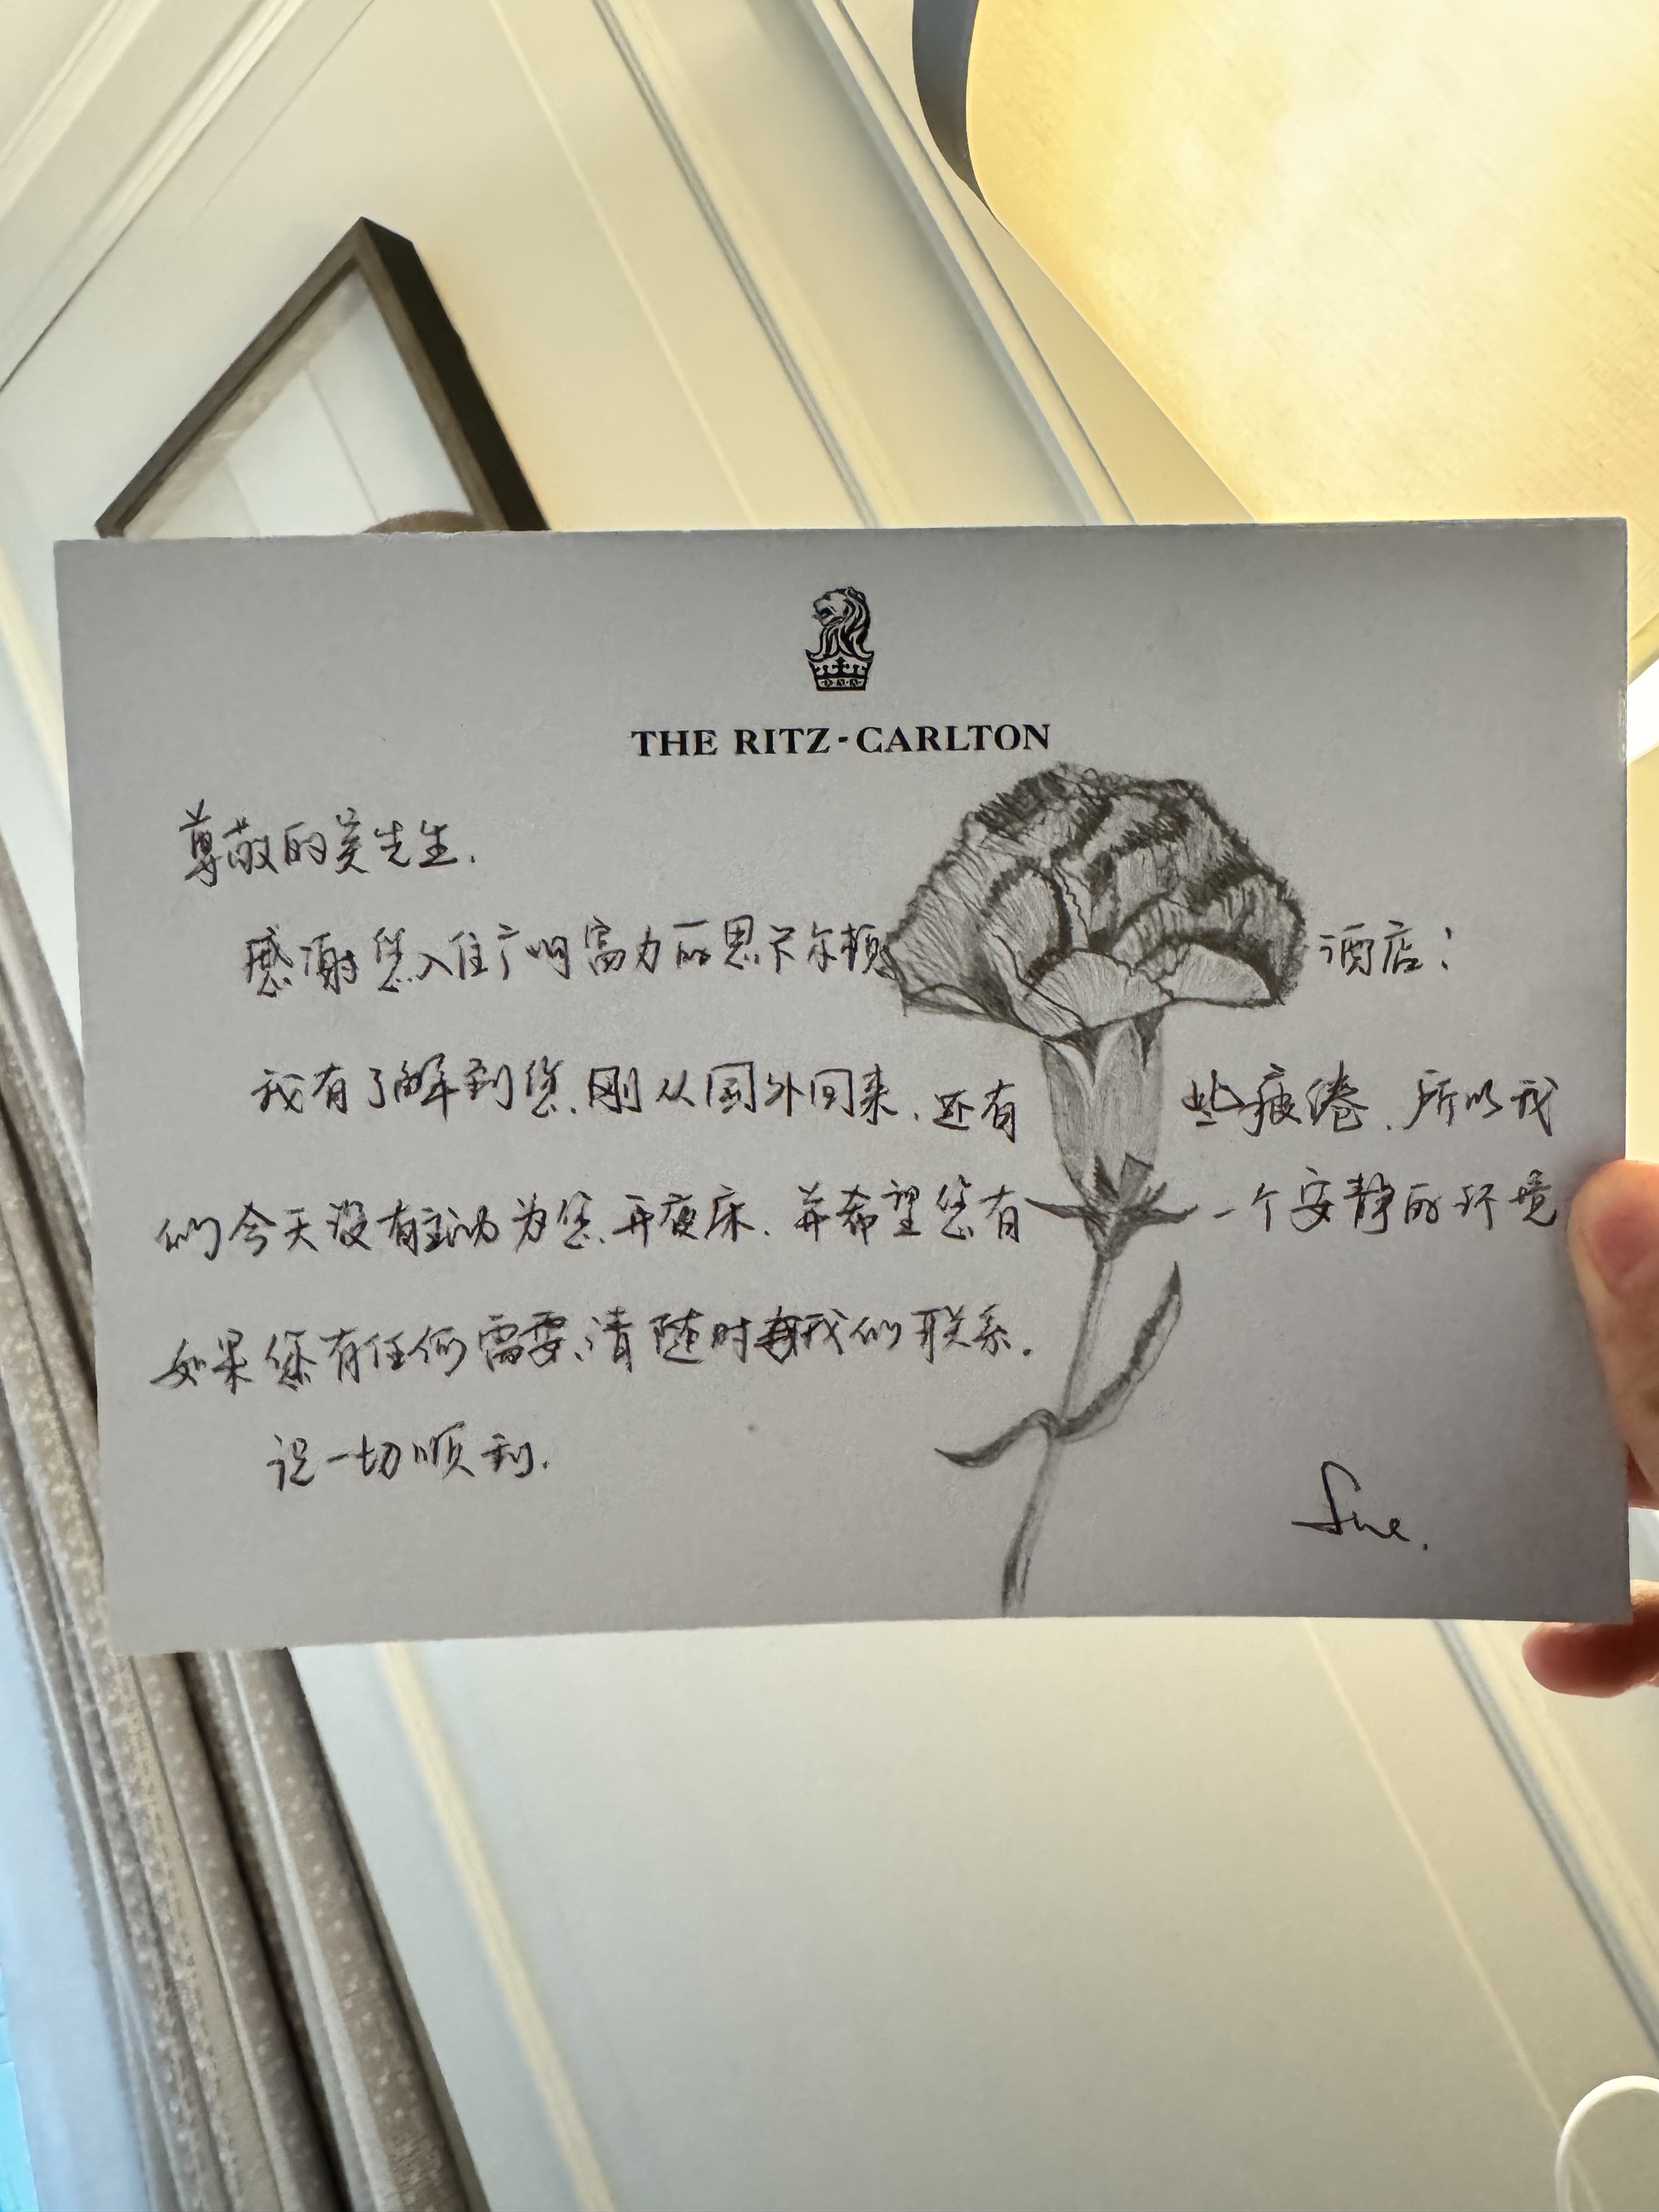 THE RITZ-CARLTON
尊敬的吴先生.
感谢您入住广州富力丽思卡尔顿酒店!
我有了解到您刚从国外回来,还有些疲倦.所以我
们今天没有主动为您开夜床.并希望您有一个安静的环境
如果您有任何需要,请随时与我们联系.
祝一切顺利.
Sue.